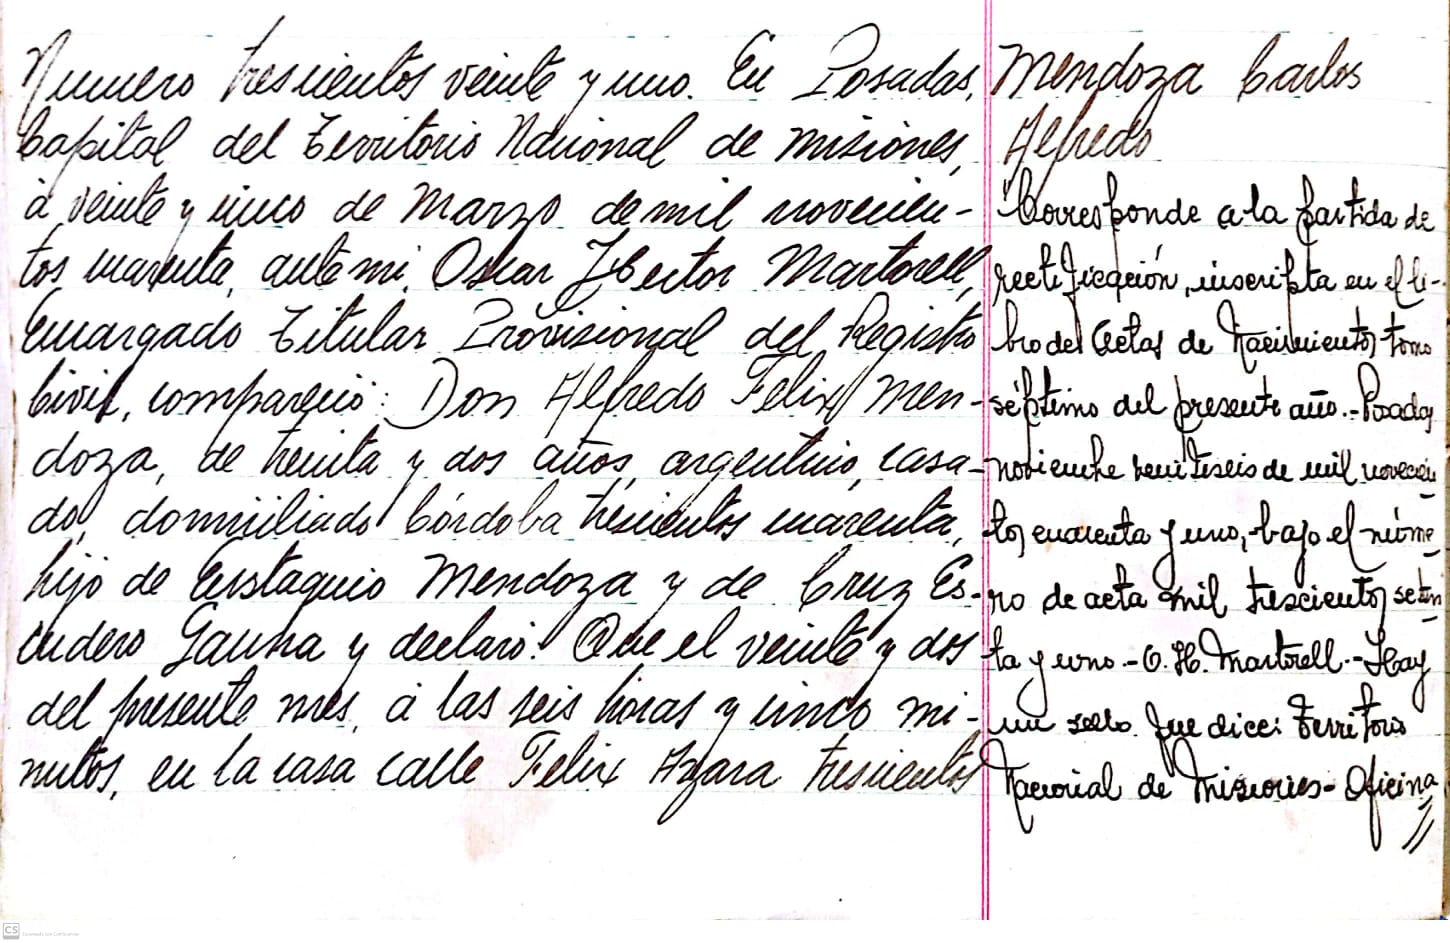 Numero trescientos veinte y uno. En Posadas,
Capital del Territorio Nacional de Misiones,
á veinte y cinco de Marzo de mil novecien-
tos cuarenta, ante mi, Oscar Hector Martorell,
Encargado Titular Provisional del Registro
Civil, compareció: Don Alfredo Felix Men-
doza, de treinta y dos años, argentino, casa-
do, domiciliado Córdoba trescientos cuarenta,
hijo de Eustaquio Mendoza y de Cruz Es-
cudero Gauna y declaró: Que el veinte y dos
del presente mes, á las seis horas y cinco mi-
nutos, en la casa calle Felix Azara trescientos
Mendoza Carlos
Alfredo
Corresponde a la partida de
rectificación, inscripta en el li-
bro de Actas de Nacimientos tomo
séptimo del presente año.- Posadas
noviembre veintiseis de mil novecien
tos cuarenta y uno,- bajo el núme-
ro de acta mil trescientos seten
ta y uno.- O. H. Martorell.- Hay
un sello que dice: Territorio
Nacional de Misiones- Oficina
//
CS
Scanned with CamScanner